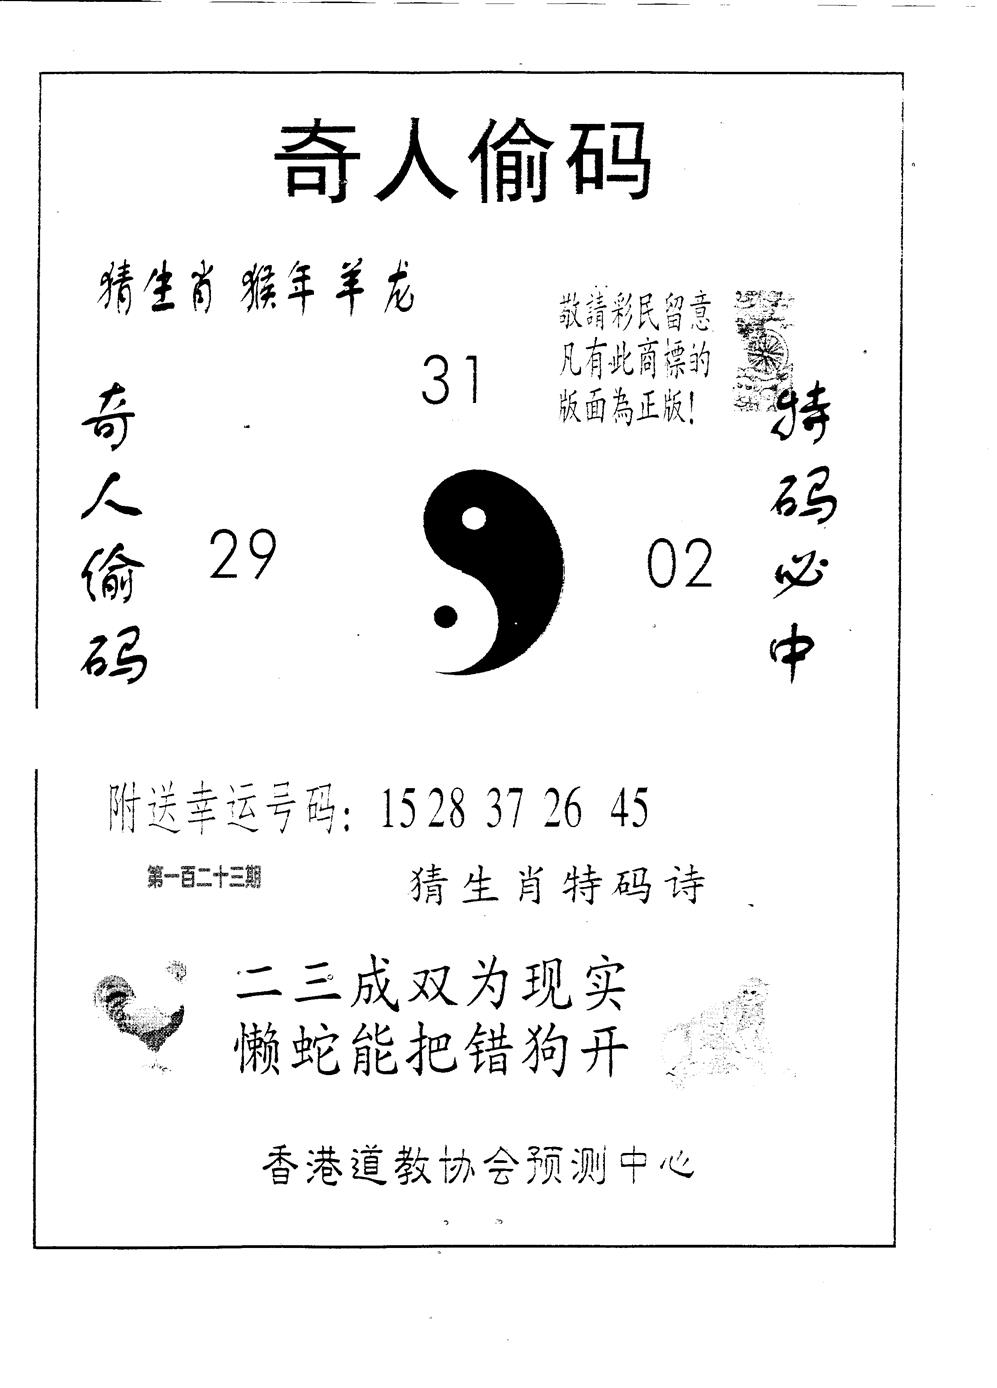 奇人偷码
猜生肖 猴年羊龙
敬請彩民留意
凡有此商標的
版面為正版!
31
奇人偷码
29
02
特码必中
附送幸运号码: 15 28 37 26 45
第一百二十三期
猜生肖特码诗
二三成双为现实
懒蛇能把错狗开
香港道教协会预测中心